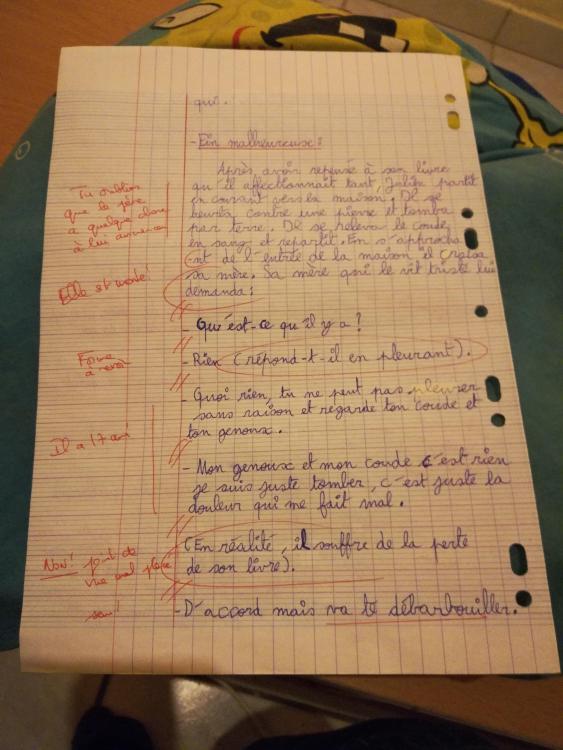 qui.
- Fin malheureuse :
Après avoir repensé à son livre
qu'il affectionnait tant, Julien partit
Tu oublies
en courant vers la maison. Il se
que le père
heurta contre une pierre et tomba
a quelque chose
par terre. Il se releva le coude
à lui annoncer
en sang et repartit. En s'approcha
-nt de l'entrée de la maison il croisa
Elle est morte !
sa mère. Sa mère qui le vit triste lui
demanda :
- Qu'est-ce qu'il y a ?
Forme
à revoir
- Rien (répond-t-il en pleurant).
- Quoi rien, tu ne peut pas pleurer
sans raison et regarde ton coude et
Il a 17 ans !
ton genoux.
- Mon genoux et mon coude c'est rien
je suis juste tomber, c'est juste la
douleur qui me fait mal.
Non ! point de
vue mal placé
(En réalité, il souffre de la perte
de son livre).
- D'accord mais va te débarbouiller.